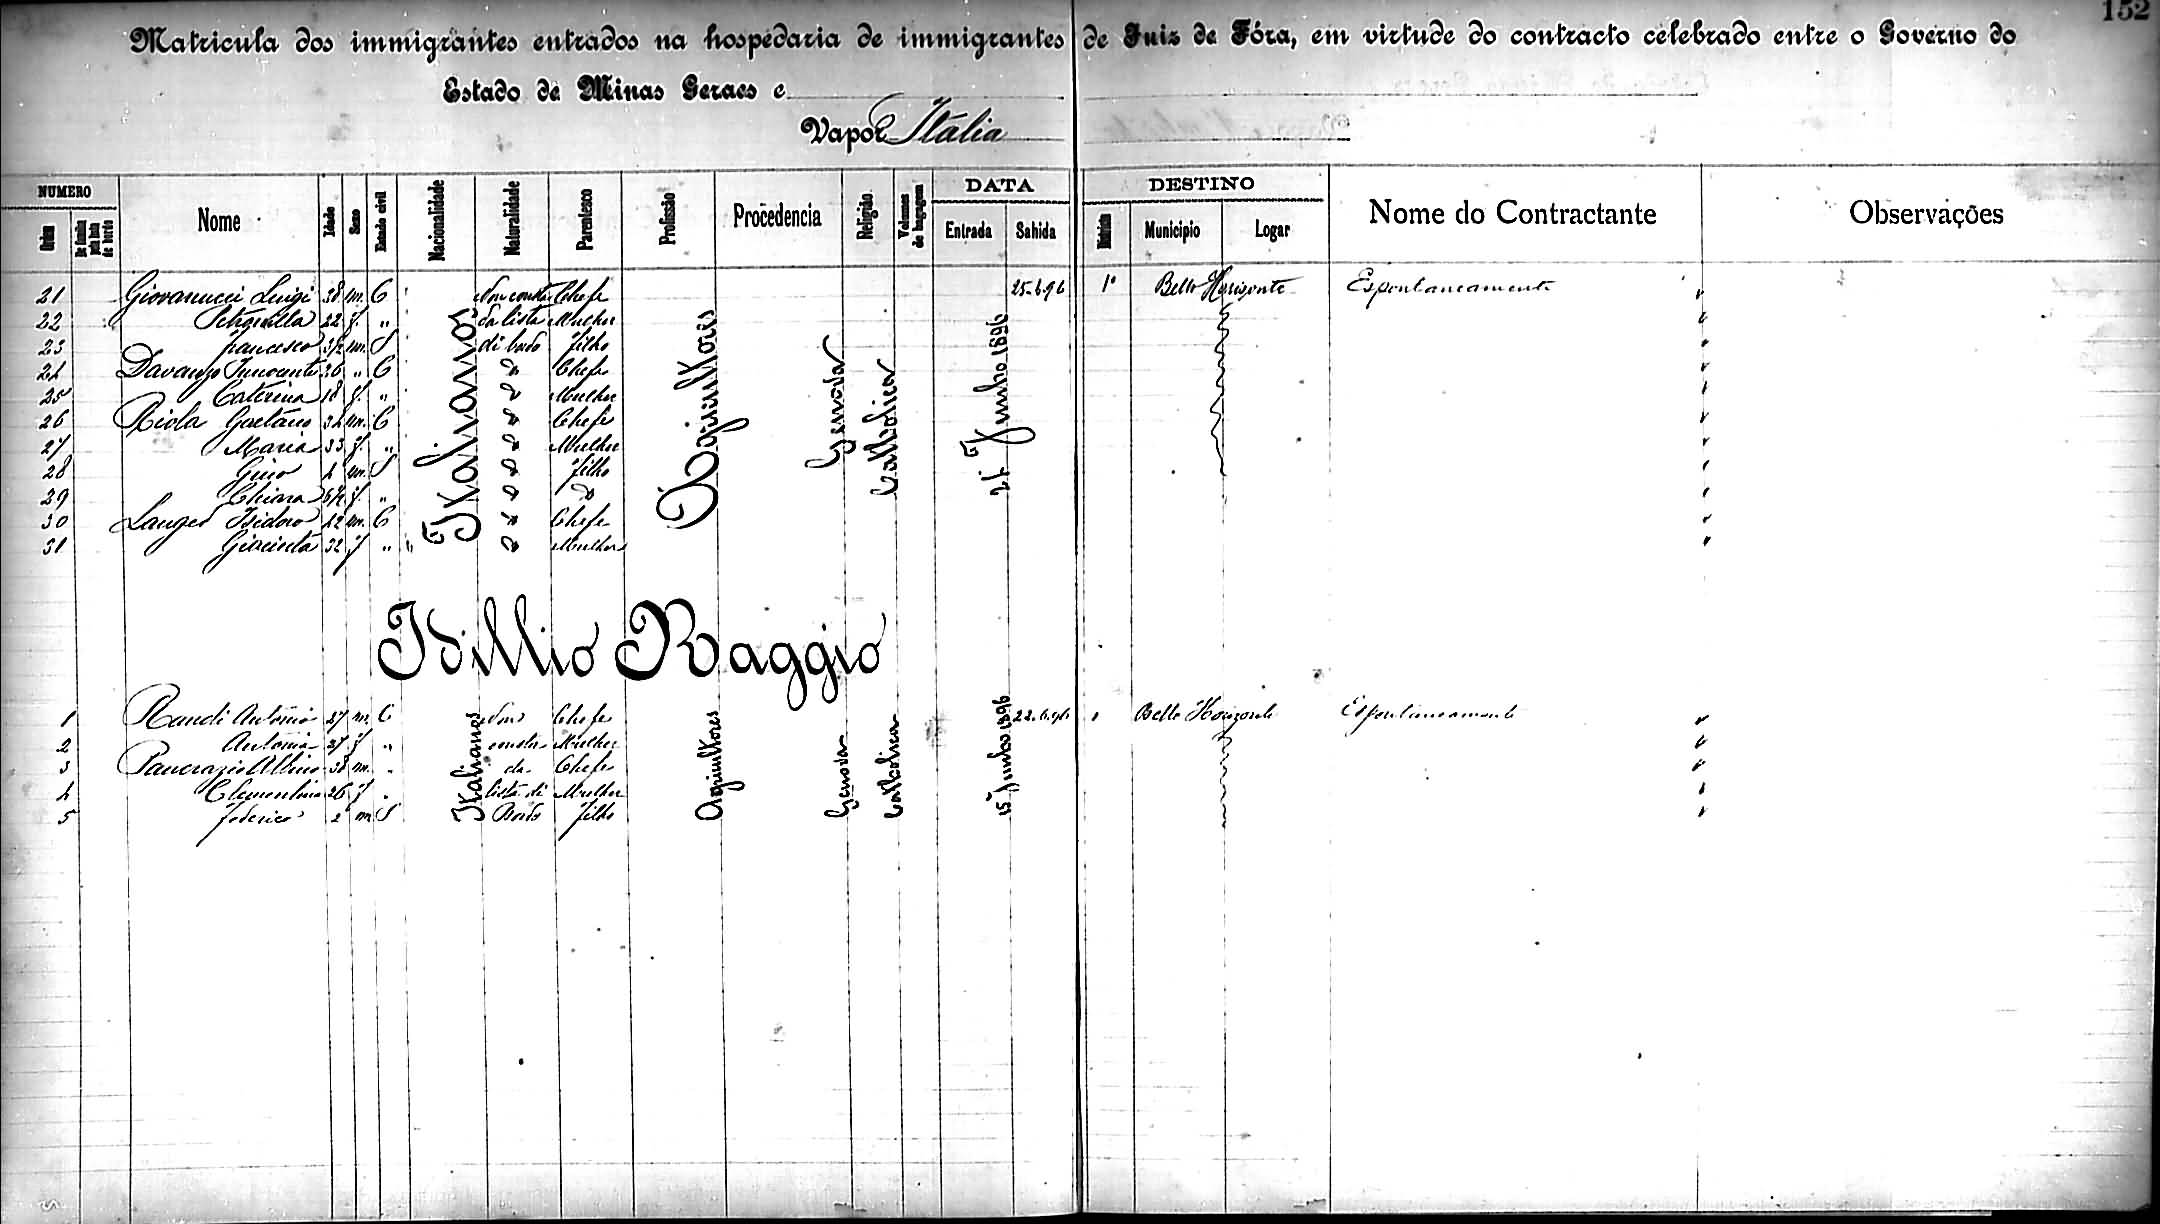 152
Matricula dos immigrantes entrados na hospedaria de immigrantes de Juiz de Fóra, em virtude do contracto celebrado entre o Governo do
Estado de Minas Geraes e
Vapor Italia
NUMERO Nome Idade Sexo Estado civil Nacionalidade Naturalidade Parentesco Profissão Procedencia Religião Volumes de bagagem DATA DESTINO Nome do Contractante Observações
Ordem De familia pela lista de bordo Entrada Sahida Districto Municipio Logar
21 Giovanucci Luigi 38 m. C Non consta Chefe 25-6-96 1º Bello Horisonte Espontaneamente
22 Petronilla 22 f. " da lista Mulher "
23 Francesco 3/12 m. S di bordo filho "
24 Davanzo Innocente 26 " C Chefe "
25 Caterina 18 f. " Mulher "
26 Riola Gaetano 34 m. C Chefe "
27 Maria 33 f. " Mulher "
28 Gino 4 m. S filho "
29 Chiara 6/12 f. " "
30 Isidoro 42 m. C Chefe "
31 Giacinta 32 f " Mulher "
Italianos Agricultores Genova Catholica 21 Junho 1896
Idillio Raggio
1 Randi Antonio 27 m. C Non Chefe 22.6.96 " Bello Horizonte Espontaneamente "
2 Antonia 27 f " consta Mulher "
3 Pancrazio Albino 38 m. " da Chefe "
4 Clementina 26 f " lista di Mulher "
5 Federico 2 m S Bordo filho "
Italianos Agricultores Genova Catholica 15 Junho 1896